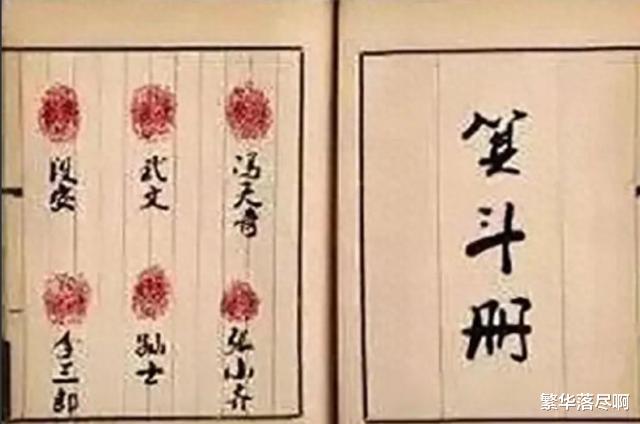 箕斗册
冯天奇
武文
段安
张小
士
三郎
繁华落尽啊